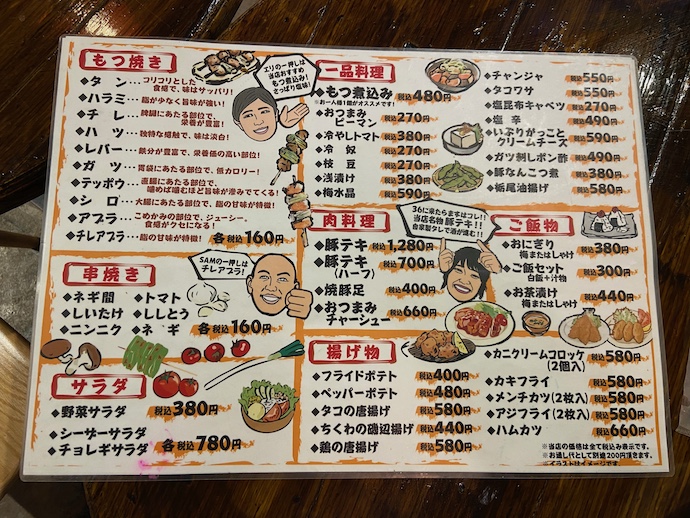 もつ焼き
◆タン…コリコリとした
食感で、味はサッパリ!
◆ハラミ…脂が少なく旨味が強い!
◆チレ…脾臓にあたる部位で、
栄養が豊富!
◆ハツ…独特な感触で、味は淡白!
◆レバー…鉄分が豊富で、栄養価の高い部位!
◆ガツ…胃袋にあたる部位で、低カロリー!
◆テッポウ…直腸にあたる部位で、
噛めば噛むほど旨味が滲みでてくる!
◆シロ…大腸にあたる部位で、脂の甘味が特徴!
◆アブラ…こめかみの部位で、ジューシー。
食感がクセになる!
◆チレアブラ…脂の甘味が特徴! 各税込160円
エリの一押しは
当店おすすめ
もつ煮込み!
さっぱり塩味!
串焼き
◆ネギ間 ◆トマト
◆しいたけ ◆ししとう
◆ニンニク ◆ネギ 各税込160円
SAMの一押しは
チレアブラ!
サラダ
◆野菜サラダ 税込380円
◆シーザーサラダ
◆チョレギサラダ 各税込780円
一品料理
◆もつ煮込み 税込480円
※お一人様1個がオススメです!
◆おつまみ
ピーマン 税込270円
◆冷やしトマト 税込380円
◆冷奴 税込270円
◆枝豆 税込270円
◆浅漬け 税込380円
◆梅水晶 税込590円
◆チャンジャ 税込550円
◆タコワサ 税込550円
◆塩昆布キャベツ 税込270円
◆塩辛 税込490円
◆いぶりがっこと
クリームチーズ 税込590円
◆ガツ刺しポン酢 税込490円
◆豚なんこつ煮 税込380円
◆栃尾油揚げ 税込580円
肉料理
◆豚テキ 税込1,280円
◆豚テキ
(ハーフ) 税込700円
◆焼豚足 税込400円
◆おつまみ
チャーシュー 税込660円
36に来たらまずはコレ!!
当店名物豚テキ!!
自家製タレで酒が進む!!
ご飯物
◆おにぎり
梅またはしゃけ 税込380円
◆ご飯セット
白飯+汁物 税込300円
◆お茶漬け
梅またはしゃけ 税込440円
揚げ物
◆フライドポテト 税込400円
◆ペッパーポテト 税込480円
◆タコの唐揚げ 税込580円
◆ちくわの磯辺揚げ 税込440円
◆鶏の唐揚げ 税込580円
◆カニクリームコロッケ
(2個入) 税込580円
◆カキフライ 税込580円
◆メンチカツ(2枚入) 税込580円
◆アジフライ(2枚入) 税込580円
◆ハムカツ 税込660円
※当店の価格は全て税込み表示です。
※お通し代として別途200円頂きます。
※イラストはイメージです。